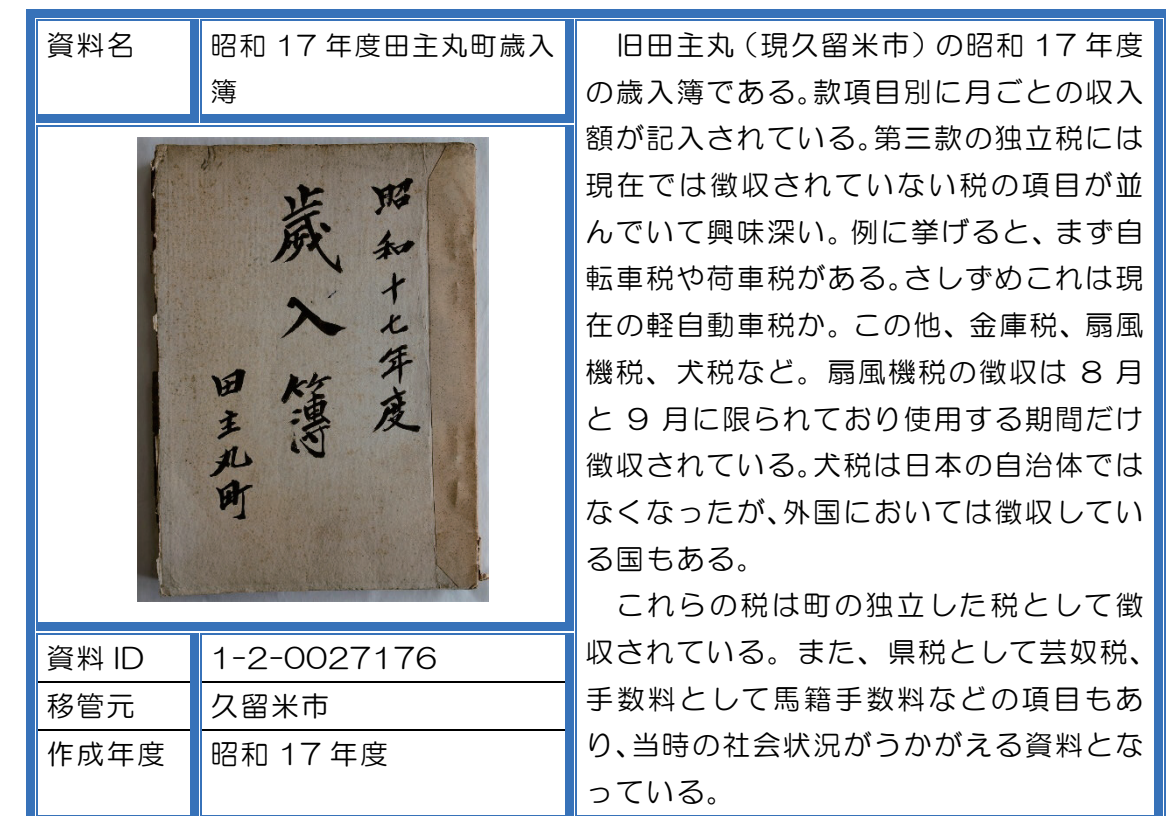 資料名
昭和 17 年度田主丸町歳入
簿
昭和十七年度
歳入簿
田主丸町
資料 ID
1-2-0027176
移管元
久留米市
作成年度
昭和 17 年度
旧田主丸(現久留米市)の昭和 17 年度
の歳入簿である。款項目別に月ごとの収入
額が記入されている。第三款の独立税には
現在では徴収されていない税の項目が並
んでいて興味深い。例に挙げると、まず自
転車税や荷車税がある。さしずめこれは現
在の軽自動車税か。この他、金庫税、扇風
機税、犬税など。扇風機税の徴収は 8 月
と 9 月に限られており使用する期間だけ
徴収されている。犬税は日本の自治体では
なくなったが、外国においては徴収してい
る国もある。
これらの税は町の独立した税として徴
収されている。また、県税として芸奴税、
手数料として馬籍手数料などの項目もあ
り、当時の社会状況がうかがえる資料とな
っている。